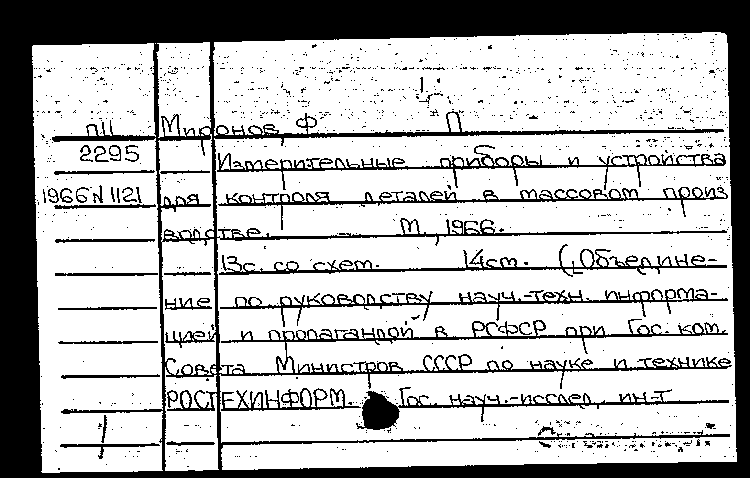 пII Миронов, Ф П
2295 Измерительные приборы и устройства
1966 N 1121 для контроля деталей в массовом произ
водстве. М., 1966.
13с. со схем. 14см. (Объедине-
ние по руководству науч.-техн. информа-
цией и пропагандой в РСФСР при Гос. ком.
Совета Министров СССР по науке и технике
РОСТЕХИНФОРМ. Гос. науч.-исслед. ин-т